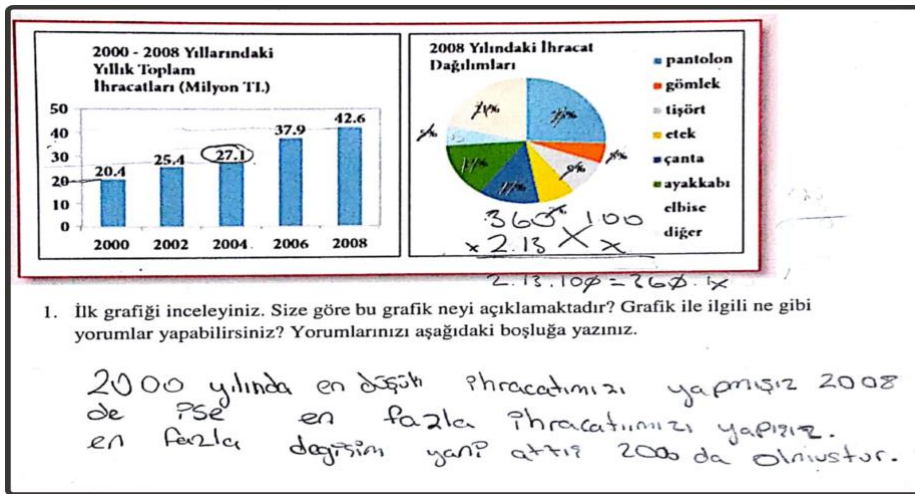 2000 - 2008 Yıllarındaki
Yıllık Toplam
İhracatları (Milyon TL)
50
40
30
20
10
0
20.4
25.4
27.1
37.9
42.6
2000
2002
2004
2006
2008
2008 Yılındaki İhracat
Dağılımları
pantolon
gömlek
tişört
etek
çanta
ayakkabı
elbise
diğer
360 100
x 2.13 x
2.13.100=360.x
1. İlk grafiği inceleyiniz. Size göre bu grafik neyi açıklamaktadır? Grafik ile ilgili ne gibi
yorumlar yapabilirsiniz? Yorumlarınızı aşağıdaki boşluğa yazınız.
2000 yılında en düşük ihracatımızı yapmışız 2008
de ise en fazla ihracatımızı yapışız.
en fazla değişim yani artış 2006 da olmuştur.